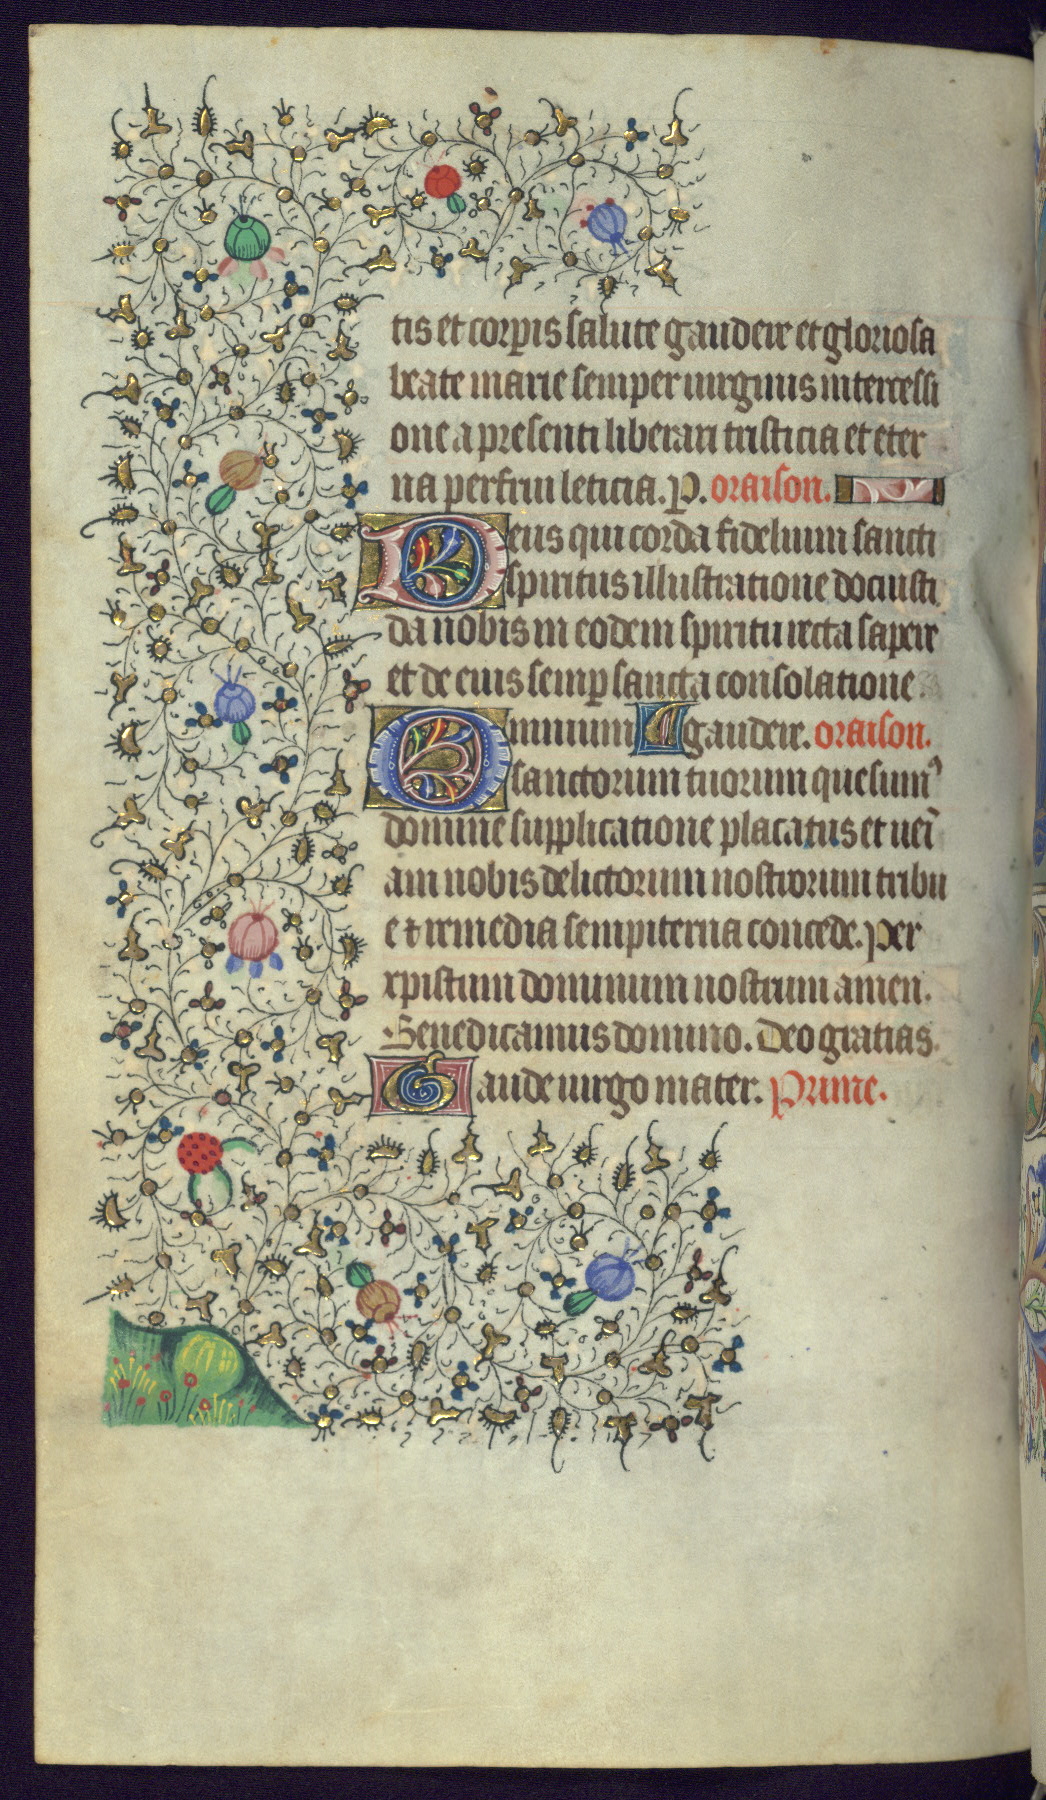 tis et corpis salute gaudere et gloriosa
beate marie semper uirginis intercessi
one a presenti liberari tristicia et eter
na perfrui leticia. P. oraison.
Deus qui corda fidelium sancti
spiritus illustratione docuisti
da nobis in eodem spiritu recta sapere
et de eius semp sancta consolatione
Omnium gaudere. oraison.
sanctorum tuorum quesumꝰ
domine supplicatione placatus et ueī
am nobis delictorum nostrorum tribu
e ⁊ remedia sempiterna concede. per
xpistum dominum nostrum amen.
Benedicamus domino. Deo gratias.
Gaude uirgo mater. Prime.